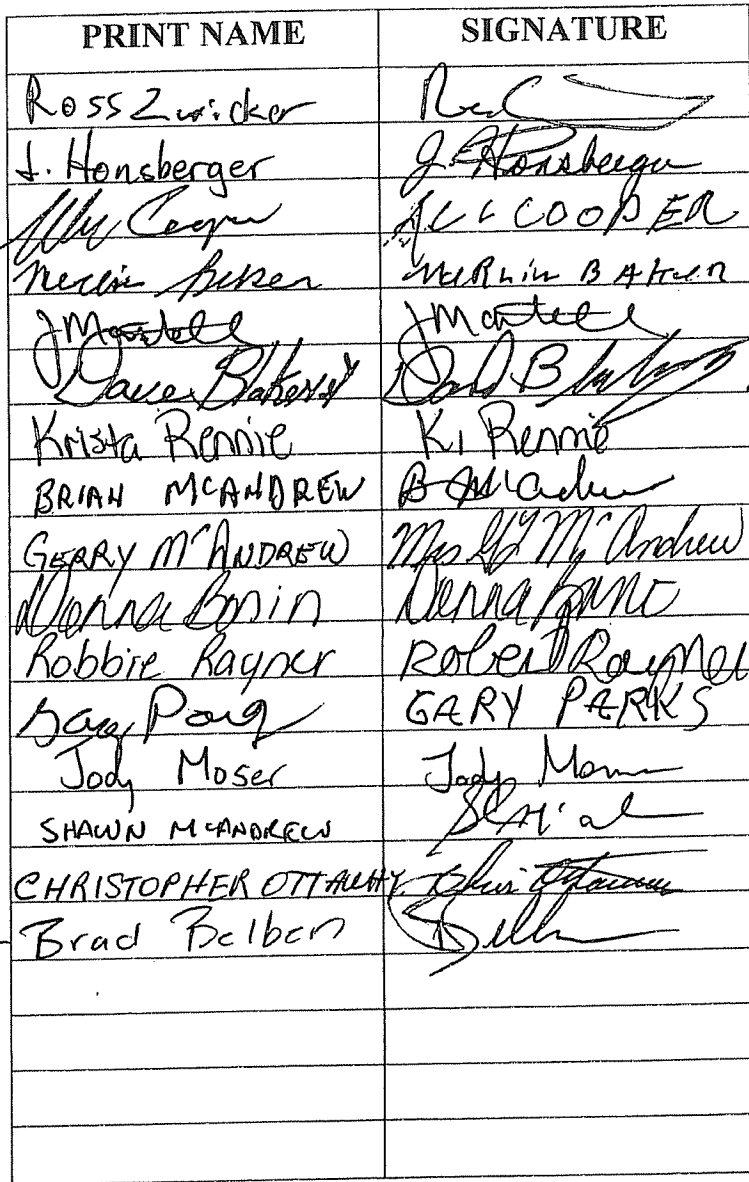 PRINT NAME SIGNATURE
Ross Zwicker
J. Honsberger J. Honsberger
Cooper COOPER
Merlin Baker MERLIN BAKER
J Martell J Martell
Dave Blakesley David B
Krista Rennie K. Rennie
BRIAN MCANDREW B McAndrew
GERRY MCANDREW Mrs McAndrew
Donna Bonin Donna
Robbie Rayner Robert Rayner
Gary GARY PARKS
Jody Moser Jody Moser
SHAWN MCANDREW
CHRISTOPHER OTTAWAY Chris Ottaway
Brad Belben